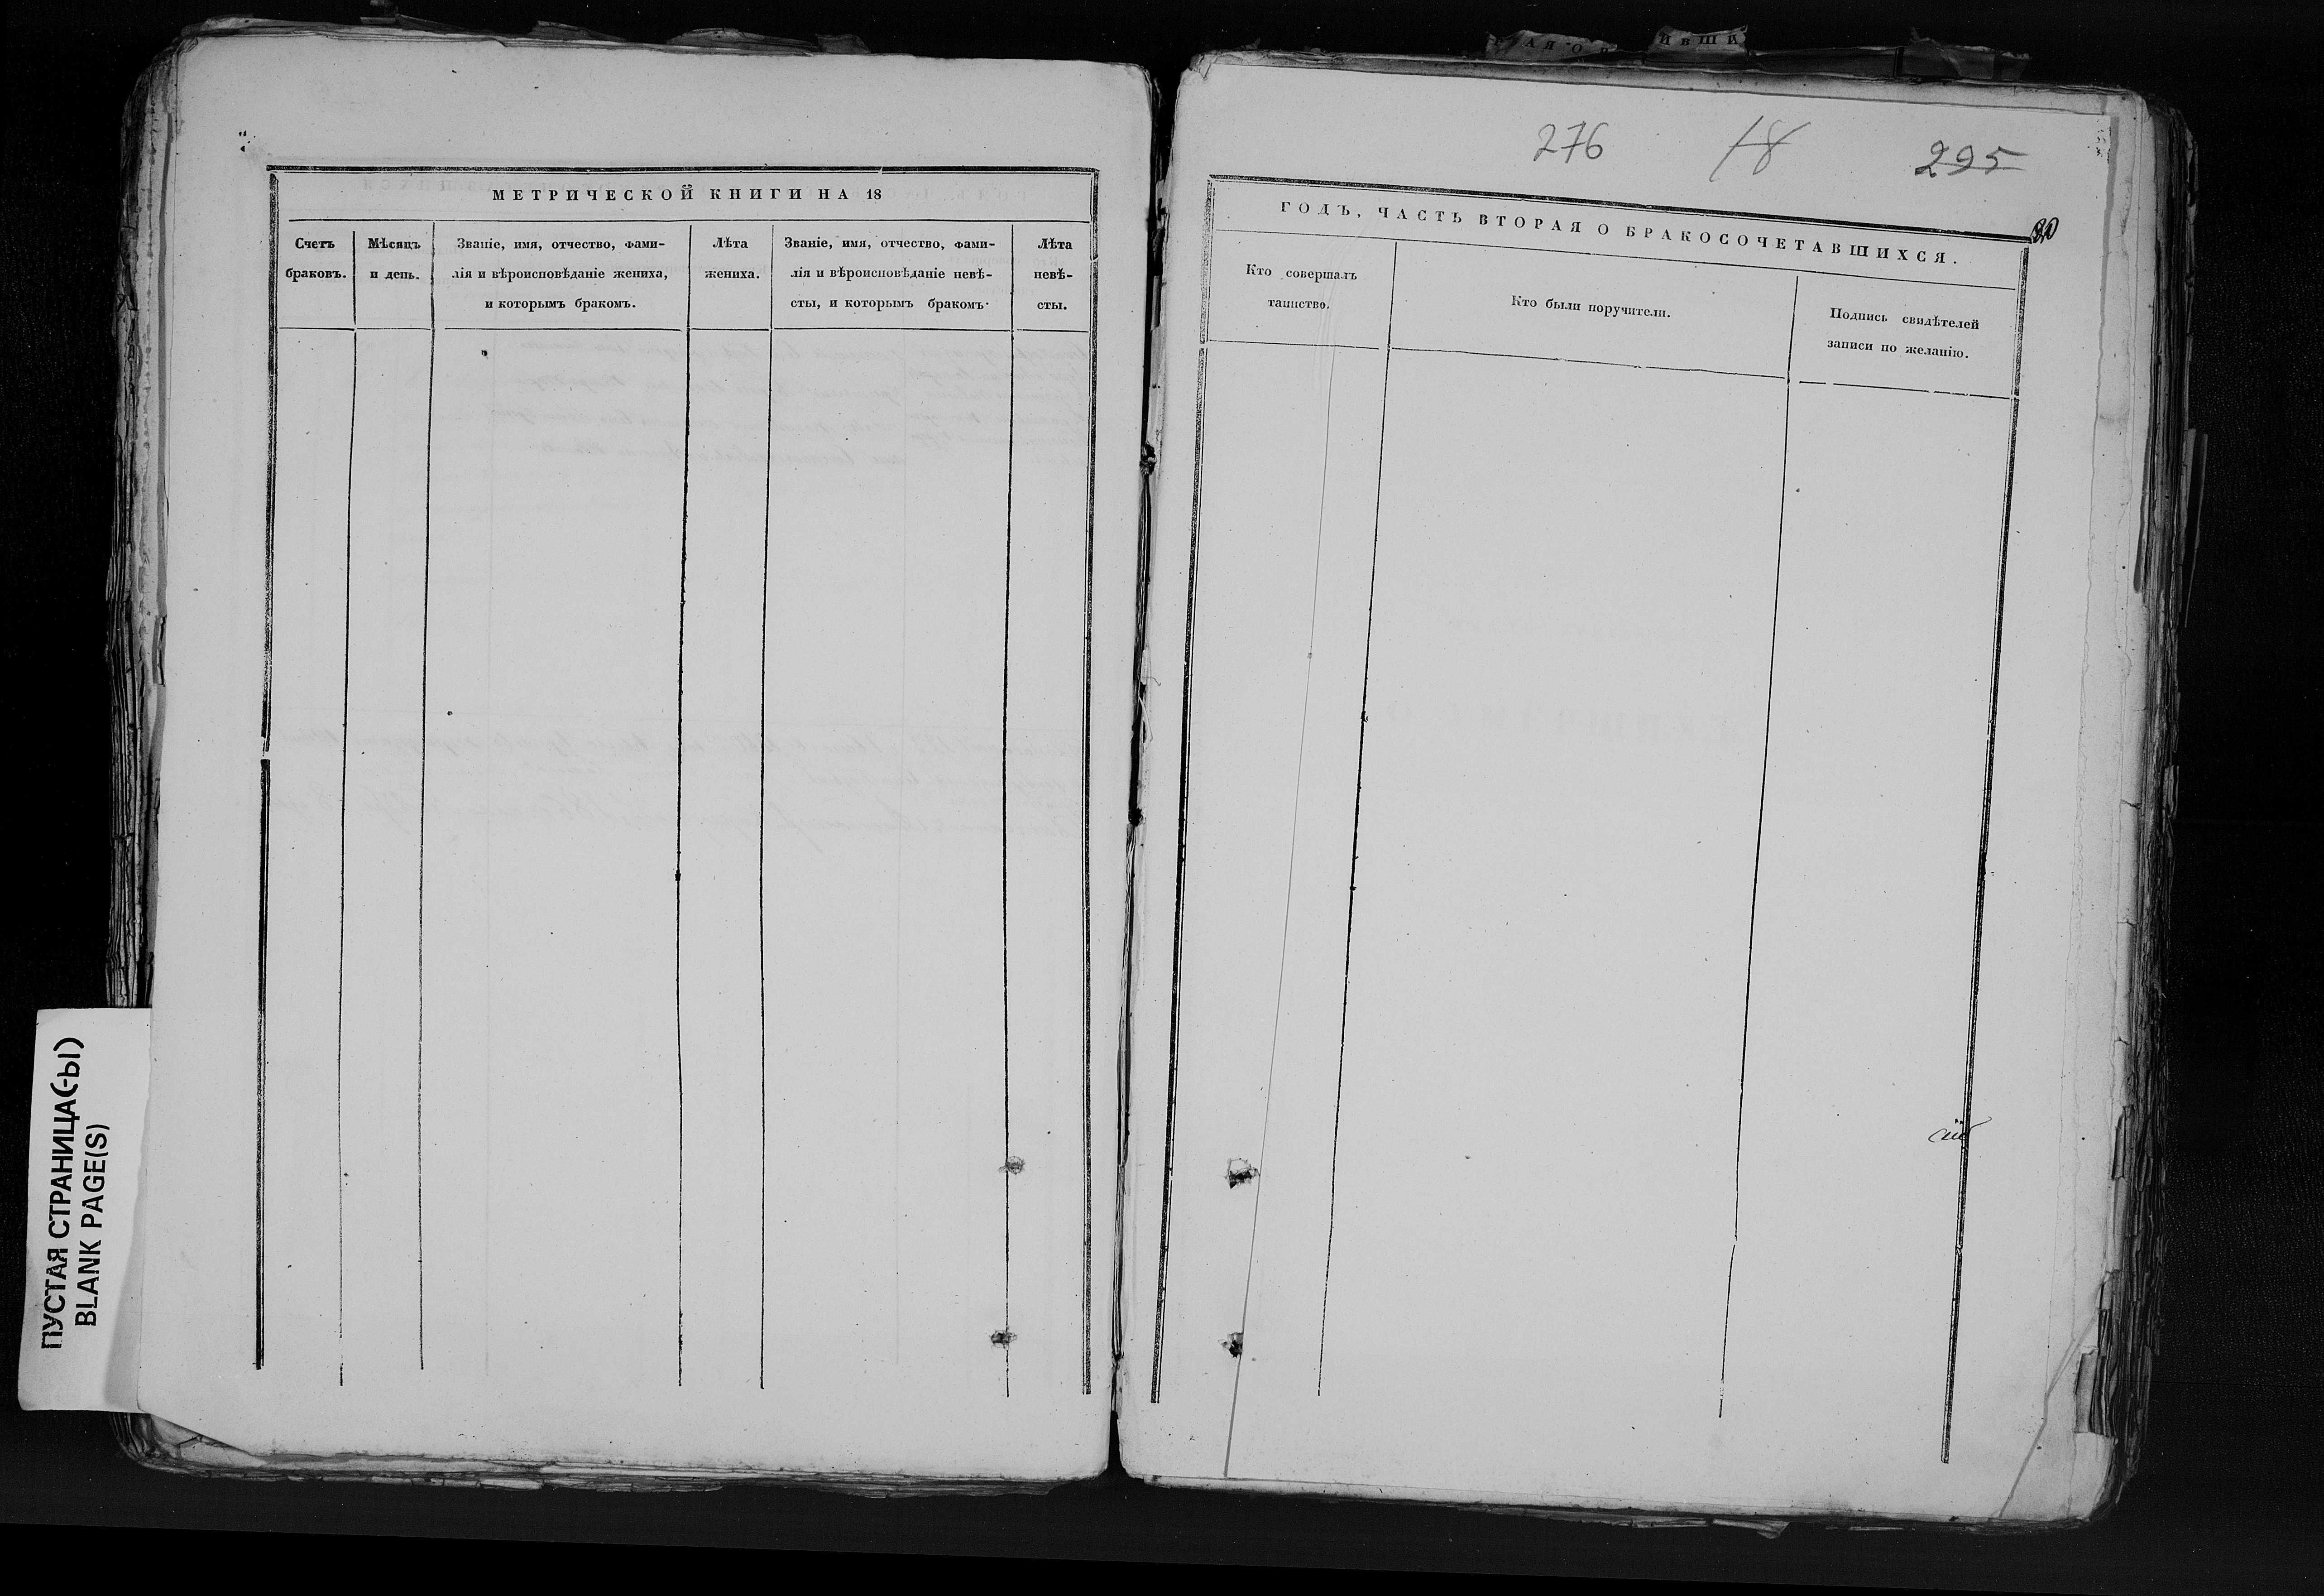 МЕТРИЧЕСКОЙ КНИГИ НА 18
Счетъ
браковъ.
Мѣсяцъ
и день.
Званіе, имя, отчество, фами-
лія и вѣроисповѣданіе жениха,
и которымъ бракомъ.
Лѣта
жениха.
Званіе, имя, отчество, фами-
лія и вѣроисповѣданіе невѣ-
сты, и которымъ бракомъ.
Лѣта
невѣ-
сты.
ПУСТАЯ СТРАНИЦА(-Ы)
BLANK PAGE(S)
276 18 295
ГОДЪ, ЧАСТЬ ВТОРАЯ О БРАКОСОЧЕТАВШИХСЯ.
Кто совершалъ
таинство.
Кто были поручители.
Подпись свидѣтелей
записи по желанію.